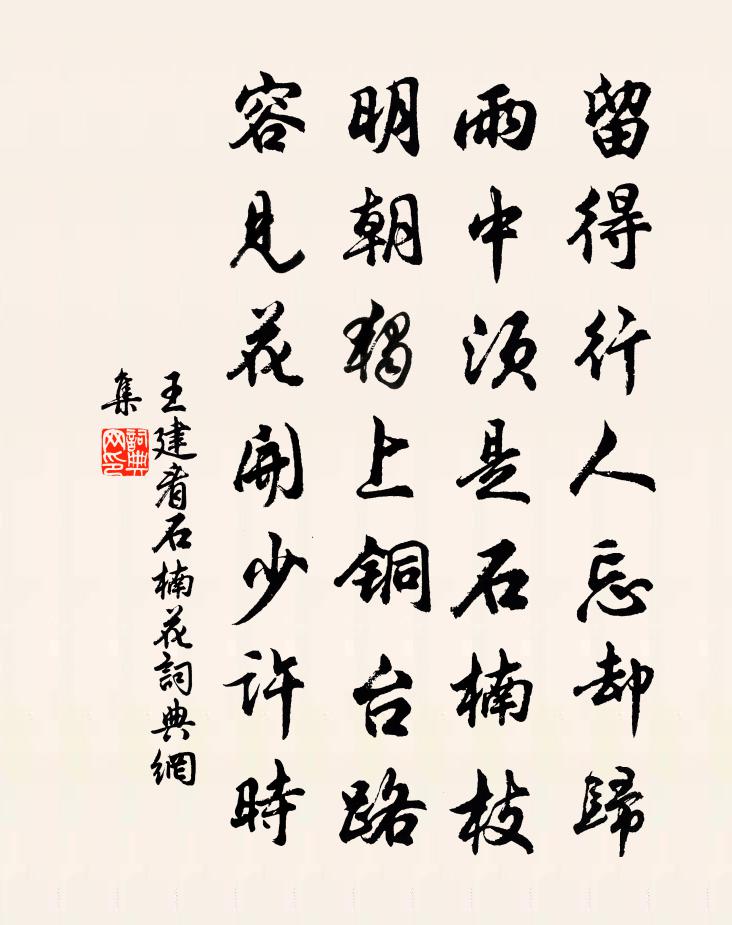 留得行人忘却歸
雨中須是石楠枝
明朝獨上銅台路
容見花開少許時
王建看石楠花詞典網
集
詞典
网印